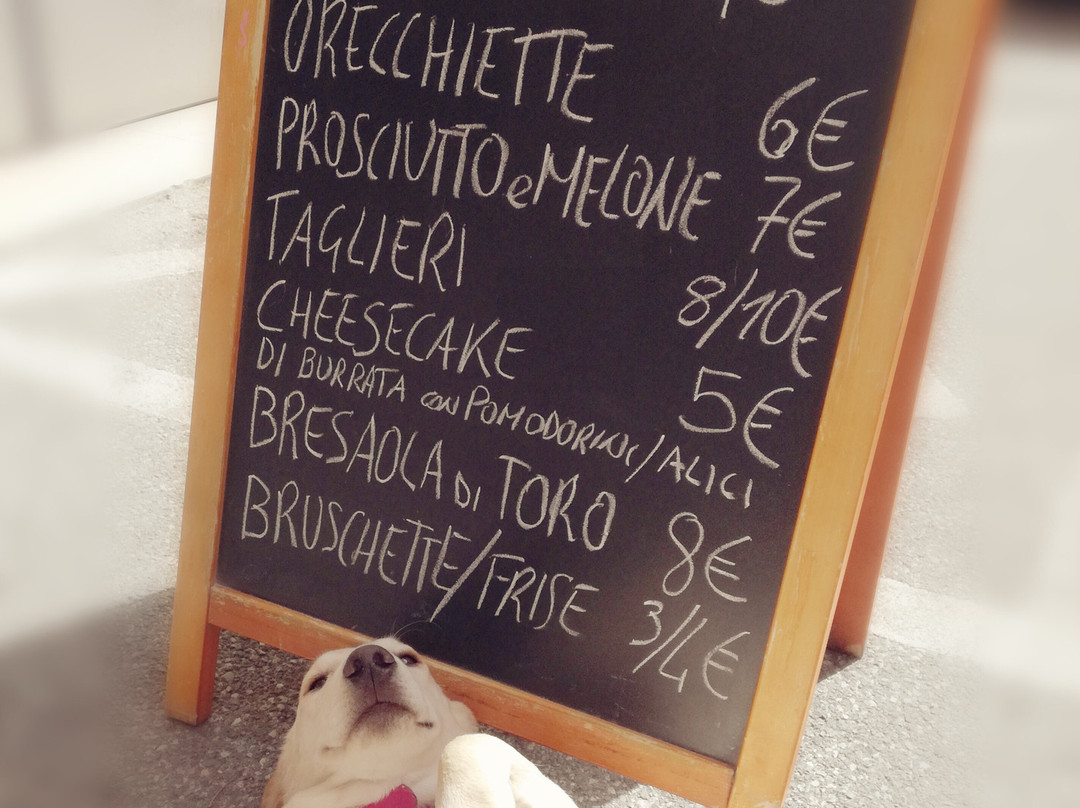 ORECCHIETTE 6€
PROSCIUTTO e MELONE 7€
TAGLIERI 8/10€
CHEESECAKE 5€
DI BURRATA con POMODORINI/ALICI
BRESAOLA DI TORO 8€
BRUSCHETTE/FRISE 3/4€